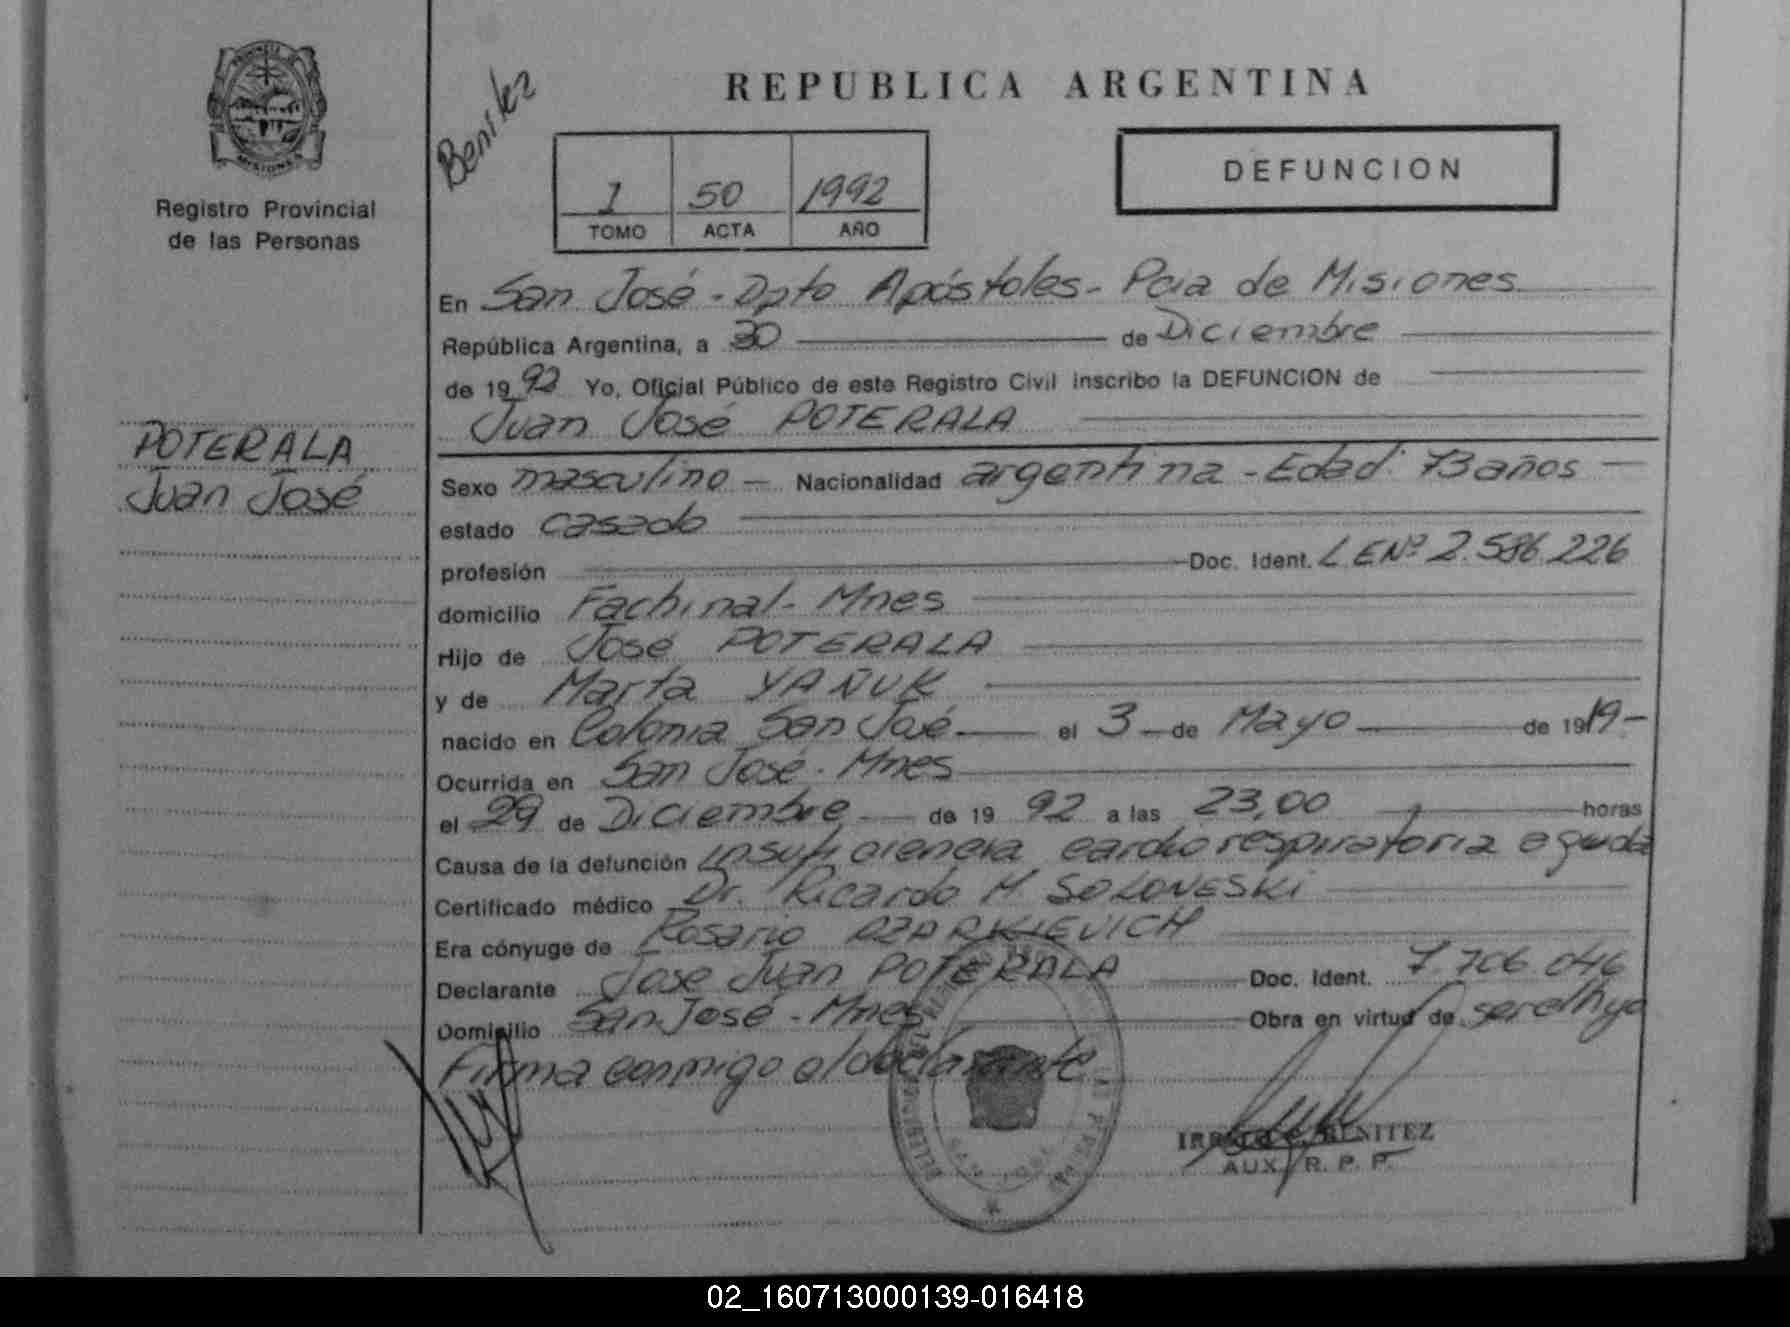 Registro Provincial
de las Personas
POTERALA
Juan José
Benitez
REPUBLICA ARGENTINA
1 50 1992
TOMO ACTA AÑO
DEFUNCION
En San José - Dpto Apóstoles - Pcia de Misiones
República Argentina, a 30 de Diciembre
de 1992 Yo, Oficial Público de este Registro Civil inscribo la DEFUNCION de
Juan José POTERALA
Sexo masculino - Nacionalidad argentina - Edad: 73 años
estado casado
profesión Doc. Ident. LENº 2.586.226
domicilio Fachinal - Mnes
Hijo de José POTERALA
y de Marta YAÑUK
nacido en Colonia San José el 3 de Mayo de 1919-
Ocurrida en San José - Mnes
el 29 de Diciembre de 1992 a las 23,00 horas
Causa de la defunción insuficiencia cardiorespiratoria aguda
Certificado médico Dr. Ricardo M. SOKOVESKI
Era cónyuge de Rosario OZARKIEVICH
Declarante José Juan POTERALA Doc. Ident. 7.706.046
Domicilio San José - Mnes Obra en virtud de ser el hijo
Firma conmigo el declarante
BENITEZ
AUX. R. P. P.
02_160713000139-016418